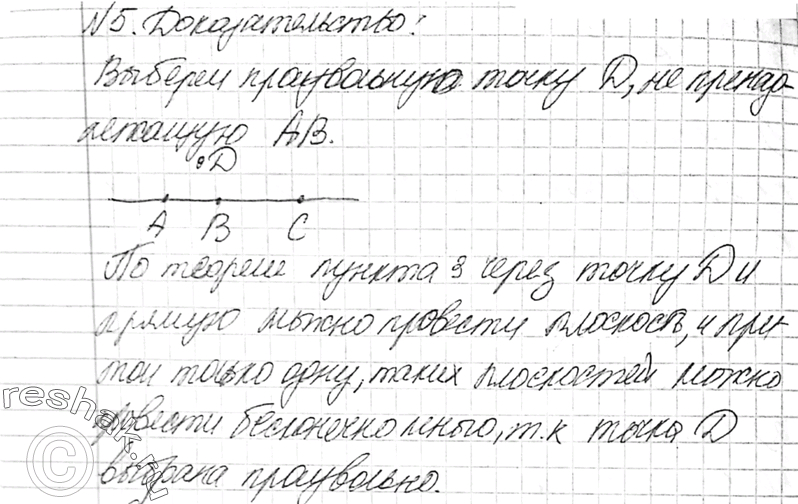 N5. Доказательство:
Выберем произвольную точку D, не принад-
лежащую AB.
D
A B C
По теореме пункта 3 через точку D и
прямую можно провести плоскость, и при-
том только одну, таких плоскостей можно
провести бесконечно много, т.к точка D
выбрана произвольно.
reshak.ru